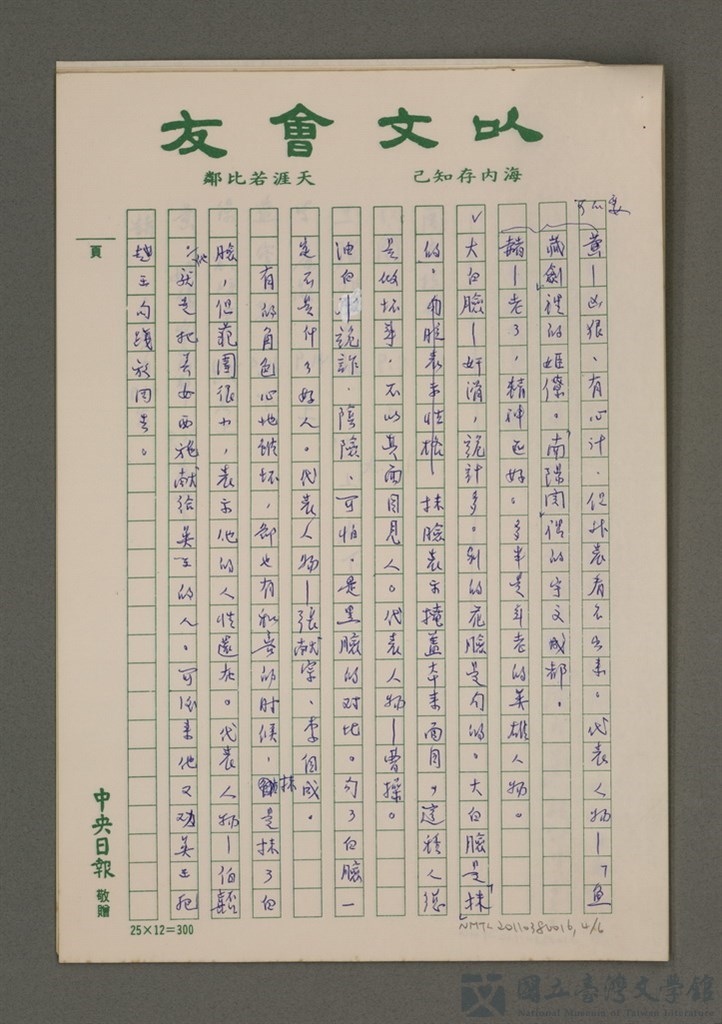 以文會友
海內存知己
天涯若比鄰
黃—凶狠、有心計,但外表看不出來。代表人物—「魚
藏劍」裡的姬僚。「南陽關」裡的宇文成都。
赭—老了,精神還好。多半是年老的英雄人物。
大白臉—奸滑,詭計多。別的花臉是勾的。大白臉是「抹」
的。勾臉表示性格,抹臉表示掩蓋本來面目,這種人總
是做壞事,不以真面目見人。代表人物—曹操。
油白—詭詐、陰險、可怕。是黑臉的對比。勾了白臉一
定不是什了好人。代表人物—張献宗、李自成。
有的角色心地雖坏,卻也有和善的时候,是抹了白
臉,但范圍很小,表示他的人性還在。代表人物—伯嚭
,他就是把美女西施献給吳王的人。可後來他又勸吳王把
越王勾踐放回去。
頁
中央日報 敬贈
25×12=300
NMTL 20110380016, 4/16
國立臺灣文學館
National Museum of Taiwan Literature